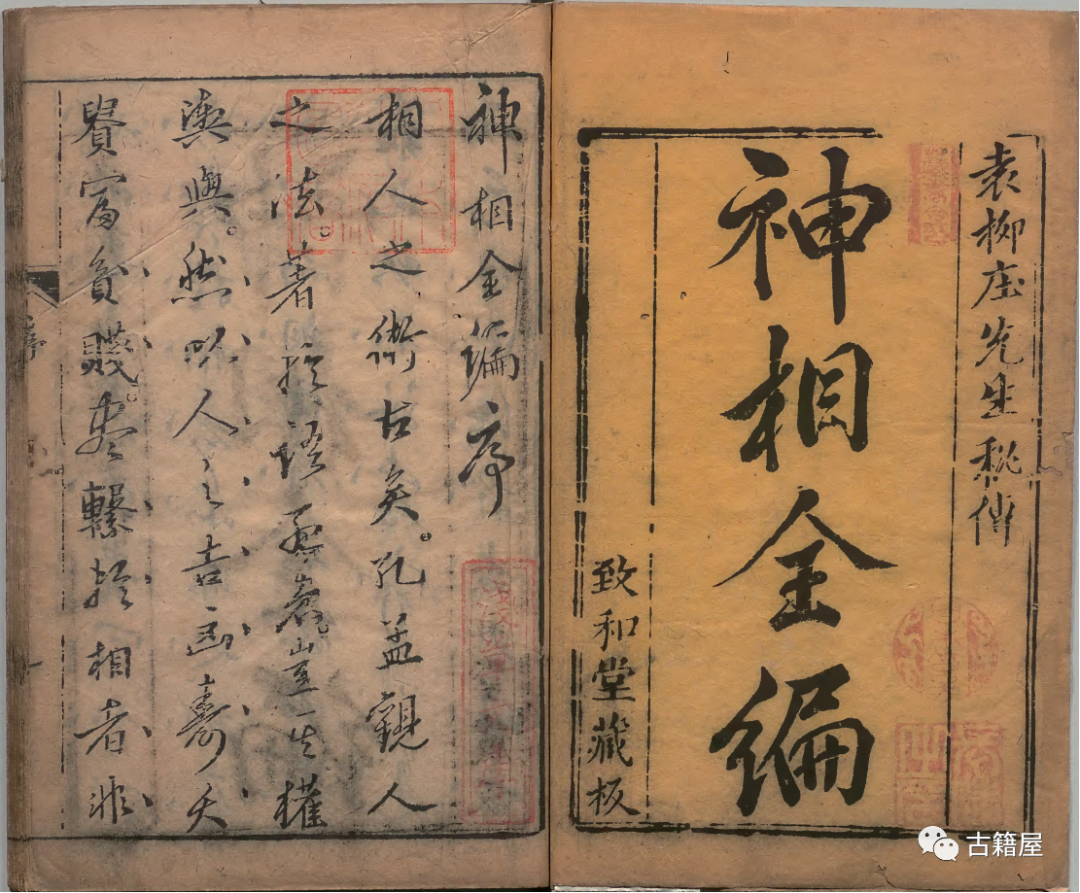 袁柳庄先生秘傳
神相全編
致和堂藏板
神相全編序
相人之術古矣。孔孟觀人
之法。著於語孟豈權
輿與。然以人之吉凶壽夭
貴富貧賤。盡繫於相者非
序
古籍屋